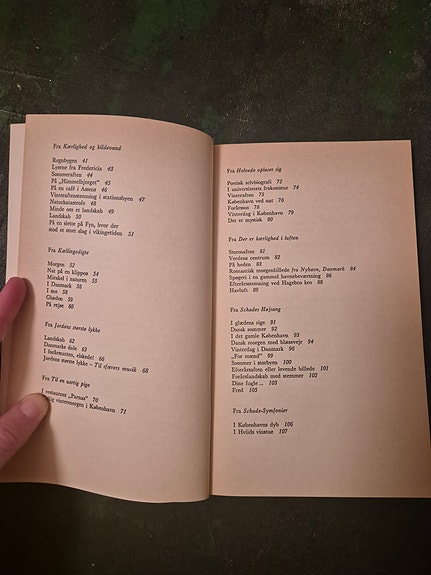 Fra Kærlighed og kildevand
Regnbyen 41
Lysene fra Fredericia 43
Sommeraften 44
På „Himmelbjerget“ 45
På en café i Assens 46
Vinteraftenstemning i stationsbyen 47
Naturkatastrofe 48
Minde om et landskab 49
Landskab 50
På en slette på Fyn, hvor der
stod et stort slag i vikingetiden 51
Fra Kællingedigte
Morgen 52
Nat på en klippeø 54
Mirakel i naturen 55
I Danmark 56
I sne 58
Glæden 59
På rejse 60
Fra Jordens største lykke
Landskab 62
Danmarks dale 63
I forårsnatten, elskede! 66
Jordens største lykke – Til sfærers musik 68
Fra Til en uartig pige
I restaurant „Parnas“ 70
vintermorgen i København 71
Fra Helvede opløser sig
Poetisk selvbiografi 72
I universitetets frokoststue 74
Vinteraften 75
København ved nat 76
Forårssus 78
Vinterdag i København 79
Det er mystisk 80
Fra Der er kærlighed i luften
Stuemaften 81
Verdens centrum 82
På heden 83
Romantisk morgenbillede fra Nyhavn, Danmark 84
Spøgeri i en gammel havnebeværtning 86
Efterårsstemning ved Hagebro kro 88
Havluft 89
Fra Schades Højsang
I glædens rige 91
Dansk sommer 92
I det gamle København 93
Dansk morgen med blæsevejr 94
Vinterdag i Danmark 96
„For mænd“ 99
Sommer i storbyen 100
Efterårsaften eller levende billede 101
Forårslandskab med stemmer 102
Dine fugle ... 103
Fred 105
Fra Schade-Symfonier
I Københavns dyb 106
I Hviids vinstue 107